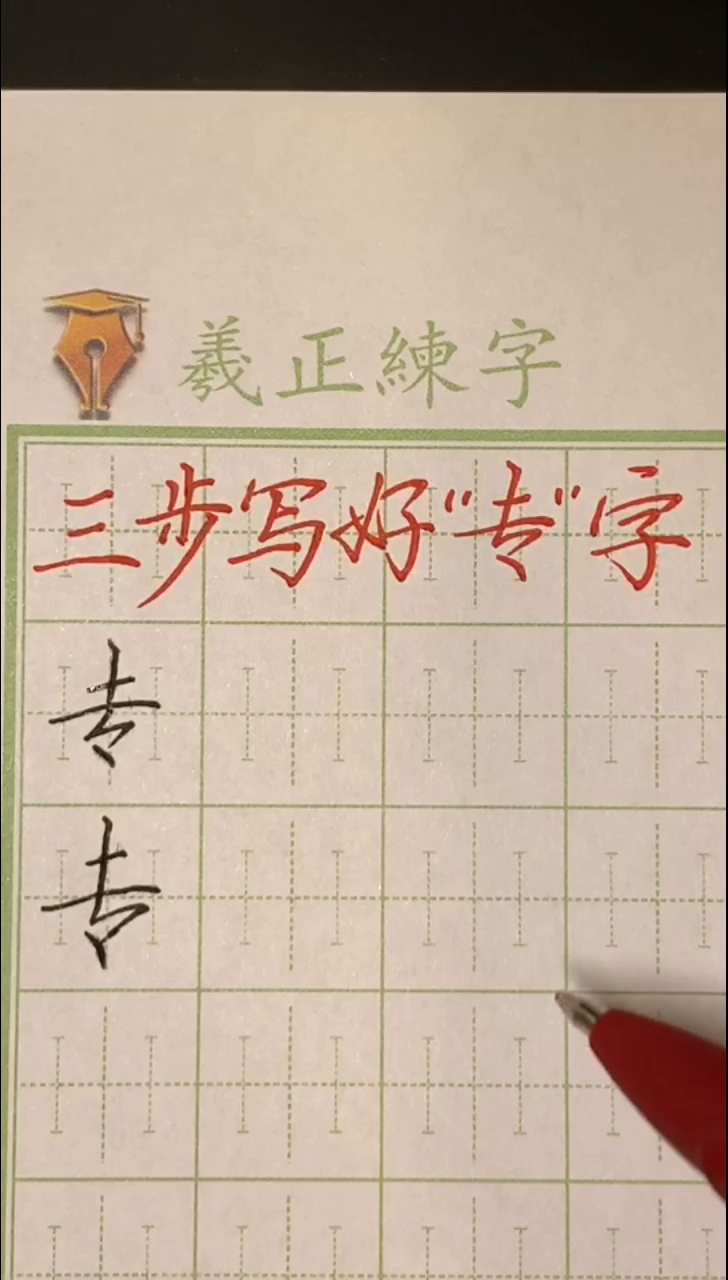 羲正練字
三步写好"专"字
专
专